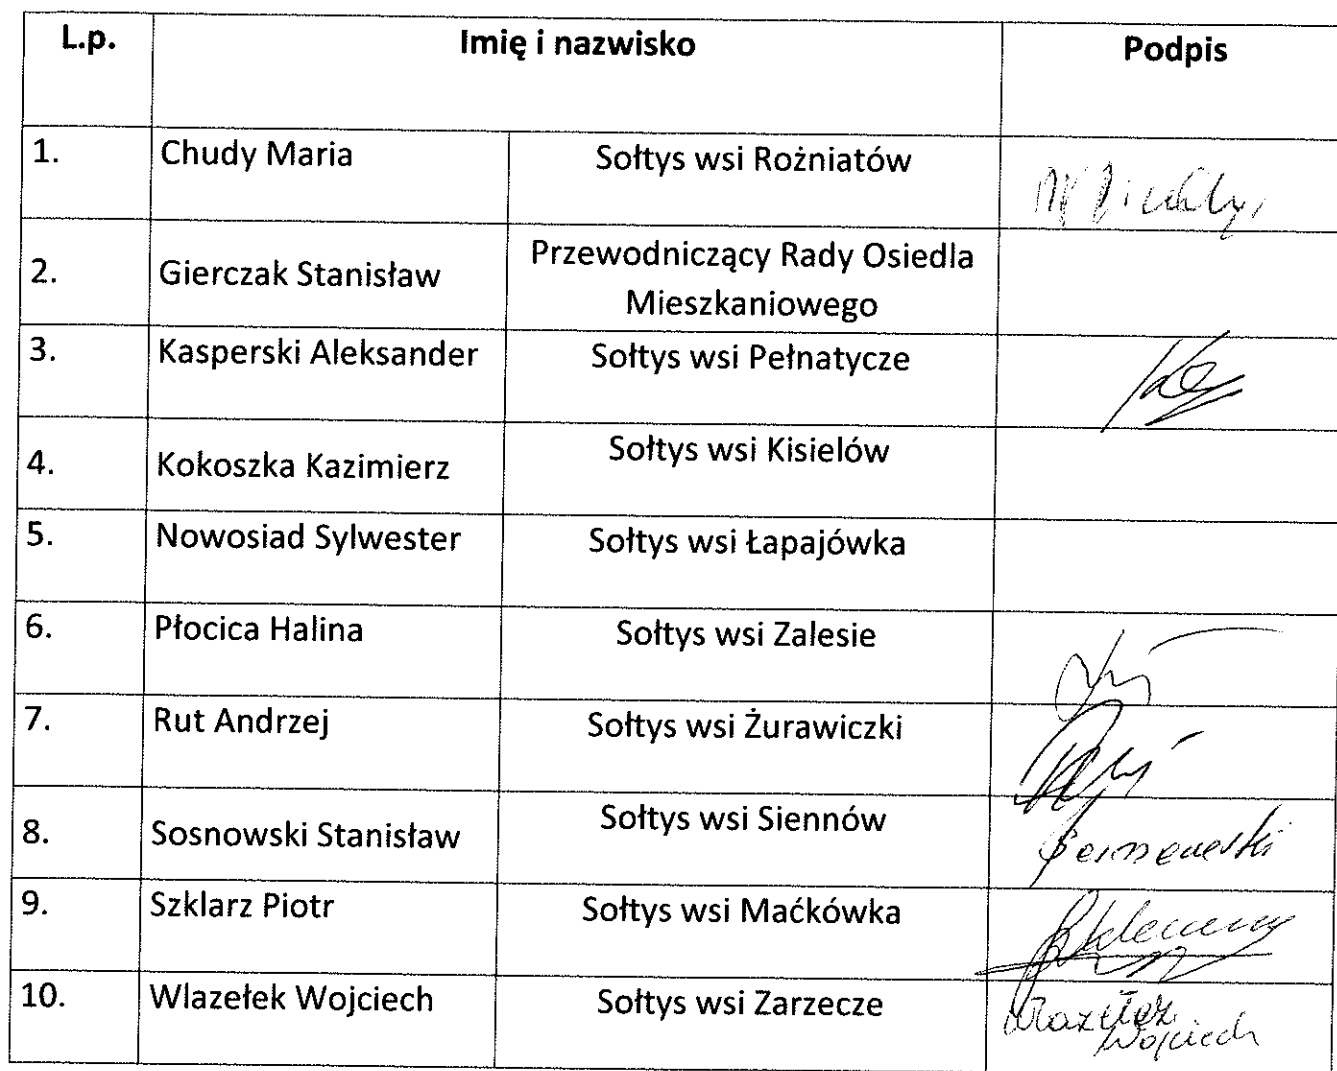 L.p. Imię i nazwisko Podpis
1. Chudy Maria Sołtys wsi Rożniatów
2. Gierczak Stanisław Przewodniczący Rady Osiedla
Mieszkaniowego
3. Kasperski Aleksander Sołtys wsi Pełnatycze
4. Kokoszka Kazimierz Sołtys wsi Kisielów
5. Nowosiad Sylwester Sołtys wsi Łapajówka
6. Płocica Halina Sołtys wsi Zalesie
7. Rut Andrzej Sołtys wsi Żurawiczki
8. Sosnowski Stanisław Sołtys wsi Siennów
9. Szklarz Piotr Sołtys wsi Maćkówka
10. Wlazełek Wojciech Sołtys wsi Zarzecze Wlazełek
Wojciech